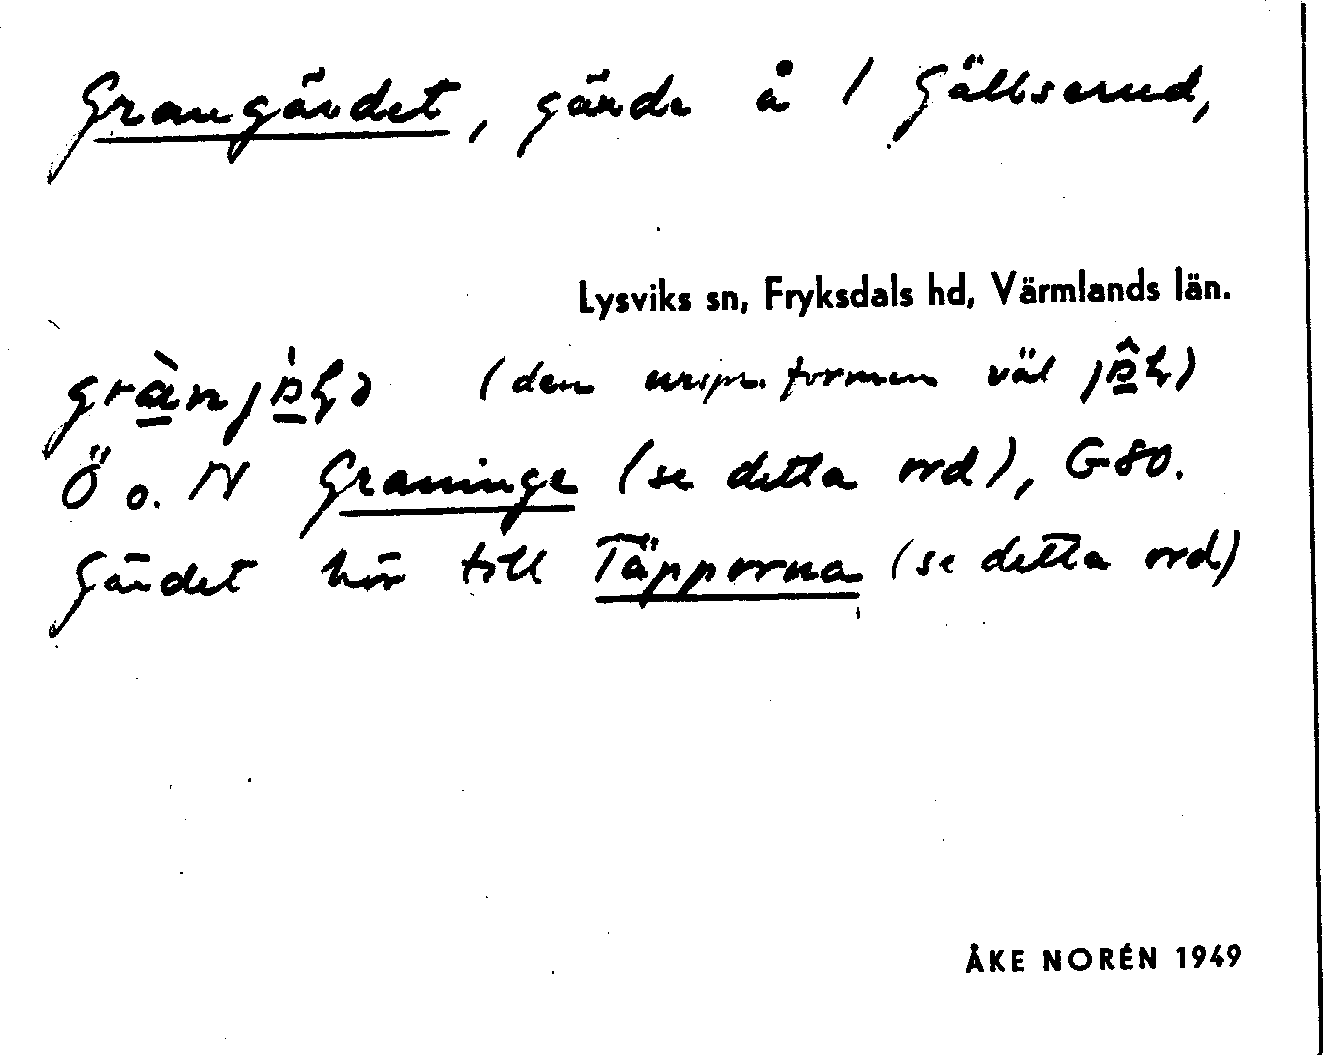 Grangärdet, gärde å 1 Gällserud,
Lysviks sn, Fryksdals hd, Värmlands län.
(den urspr. formen väl
Ö o. N Graninge (se detta ord), G80.
Gärdet hör till Täpporna (se detta ord)
ÅKE NORÉN 1949